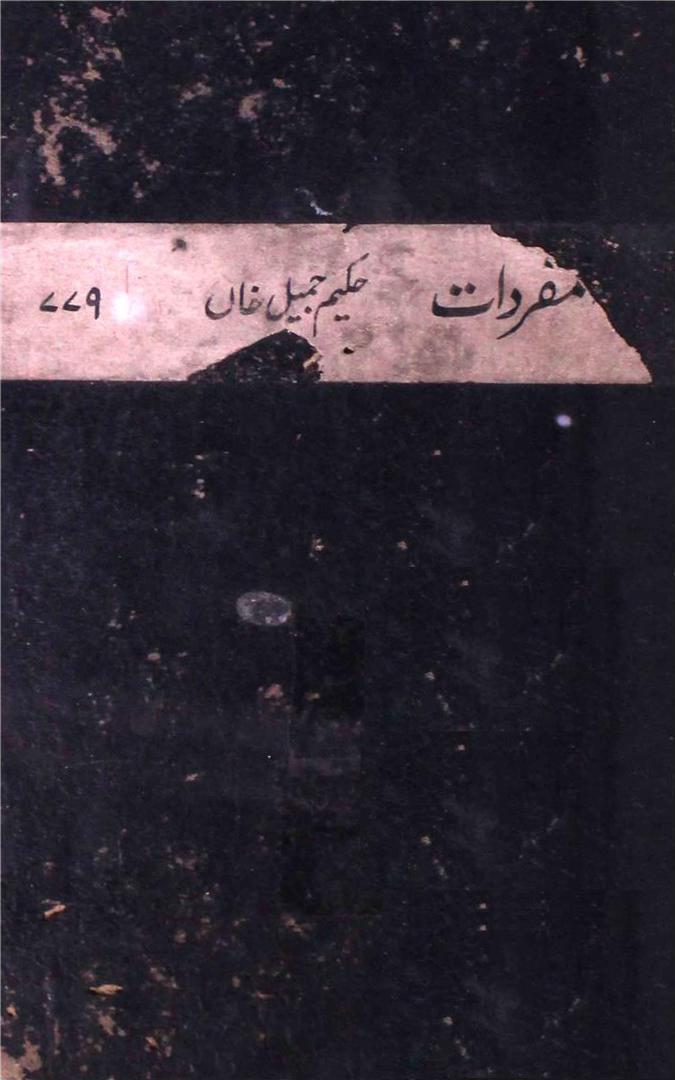 مفردات حکیم جمیل خاں ۷۷۹